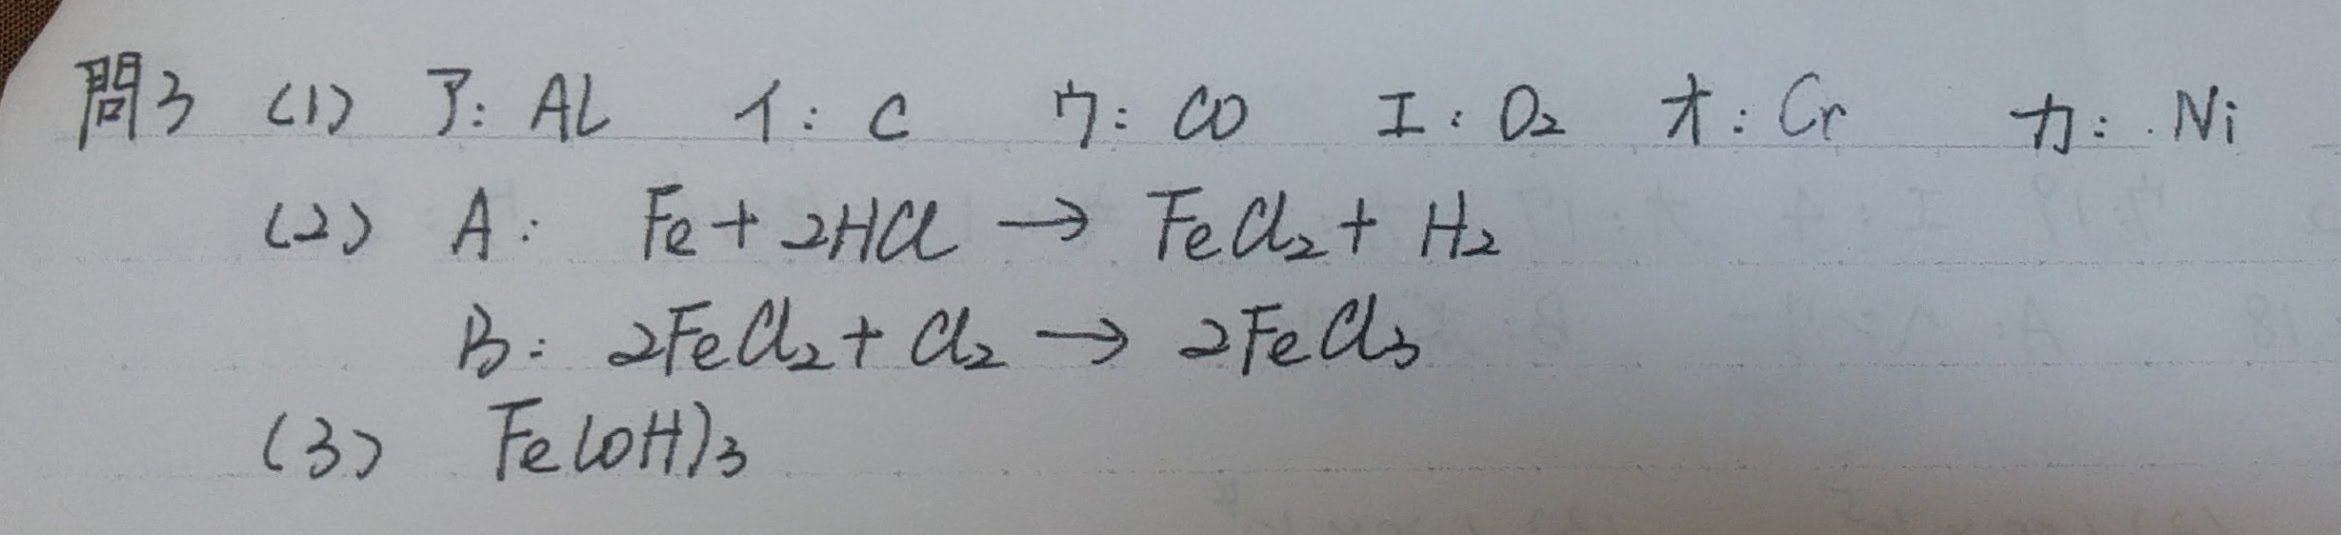 問3 (1) ア: Al イ: C ウ: CO エ: O₂ オ: Cr カ: Ni
(2) A: Fe + 2HCl → FeCl₂ + H₂
B: 2FeCl₂ + Cl₂ → 2FeCl₃
(3) Fe(OH)₃